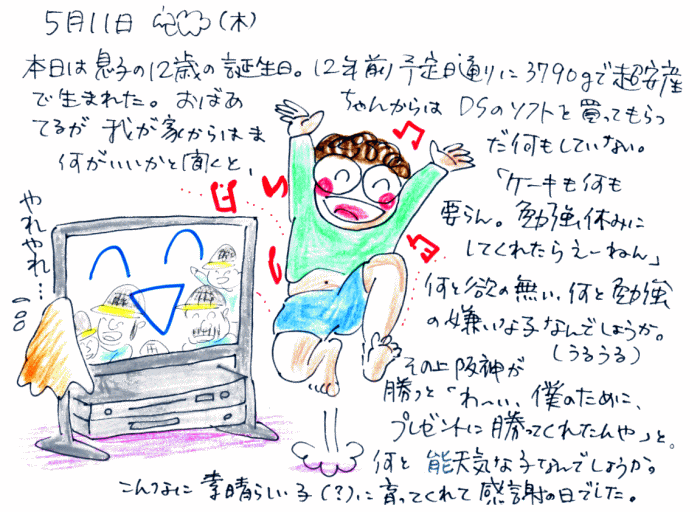 5月11日 (木)
本日は息子の12歳の誕生日。12年前予定日通りに3790gで超安産
で生まれた。おばあちゃんからは DSのソフトを買ってもらっ
てるが我が家からはまだ何もしていない。
何がいいかと聞くと、「ケーキも何も
要らん。勉強休みに
してくれたらえーねん」
何と欲の無い、何と勉強
の嫌いな子なんでしょうか。
(うるうる)
その上阪神が
勝つと「わ〜い、僕のために、
プレゼントに勝ってくれたんや」と。
何と能天気な子なんでしょうか。
こんなに素晴らしい子(?)に育ってくれて感謝の日でした。
やれ
やれ…